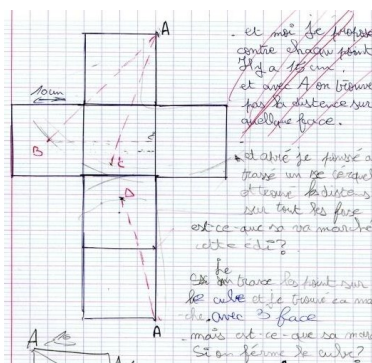 A
. et moi je propose
contre chaque point
Il y a 15 cm.
et avec A on trouve
pas la distence sur
quelque face.
10cm
B
C
D
A
et abré je pensé a
trassé un
et trouvé les distens
sur tout les fase
est-ce-que sa va marché
cette édi?
je
Si on trace les point sur
le cube et je trouve ca mar
che. avec 3 face
. mais est-ce-que sa marc
Si on férme le cube?
A